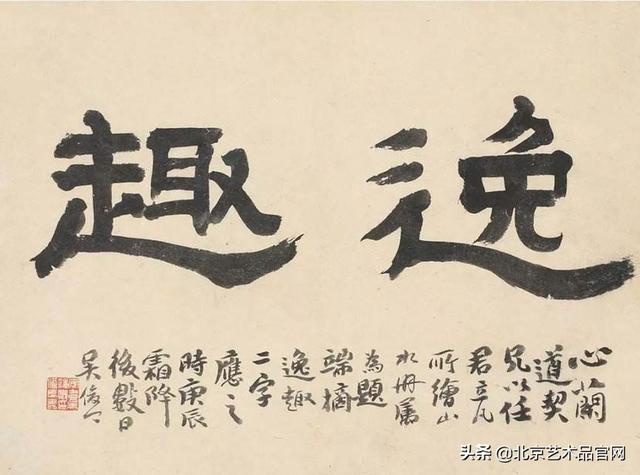 逸趣
心蘭
道契
兄以任
君立凡
所繪山
水冊屬
為題
端摘
逸趣
二字
應之
時庚辰
霜降
後數日
吳俊
头条 @北京艺术品官网